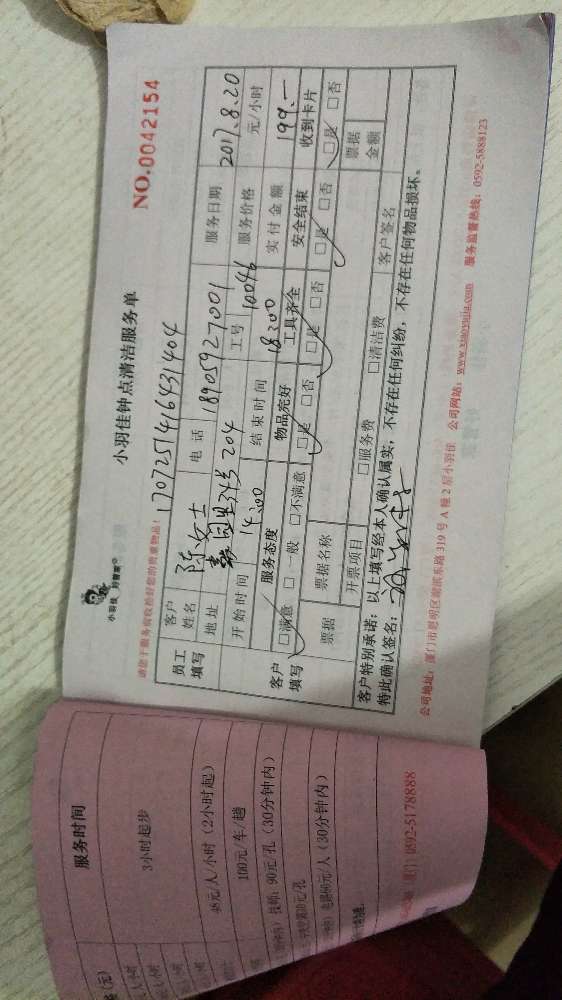 小羽佳 好管家
小羽佳钟点清洁服务单
NO.0042154
请您于服务前收拾好您的贵重物品!
17072514164431404
员工填写
客户姓名 陈女士 电话 18905927001 服务日期 2017.8.20
地址 园里34号204 工号 10046 服务价格 元/小时
开始时间 14:00 结束时间 18:00 实付金额 199.-
客户填写
服务态度 物品完好 工具齐全 安全结束 收到卡片
□满意 □一般 □不满意 □是 □否 □是 □否 □是 □否 □是 □否
票据 票据名称 票据金额
开票项目 □服务费 □清洁费 客户签名
客户特别承诺:以上填写经本人确认属实,不存在任何纠纷,不存在任何物品损坏。
特此确认签名:
公司地址:厦门市思明区湖滨东路319号A幢2层小羽佳 公司网站:www.xiaoyujia.com 服务监督热线:0592-5888123
服务时间
3小时起步
48元/人/小时(2小时起)
100元/车/趟
技师:90元/孔(30分钟内)
元/人(30分钟内)
厦门 0592-5178888